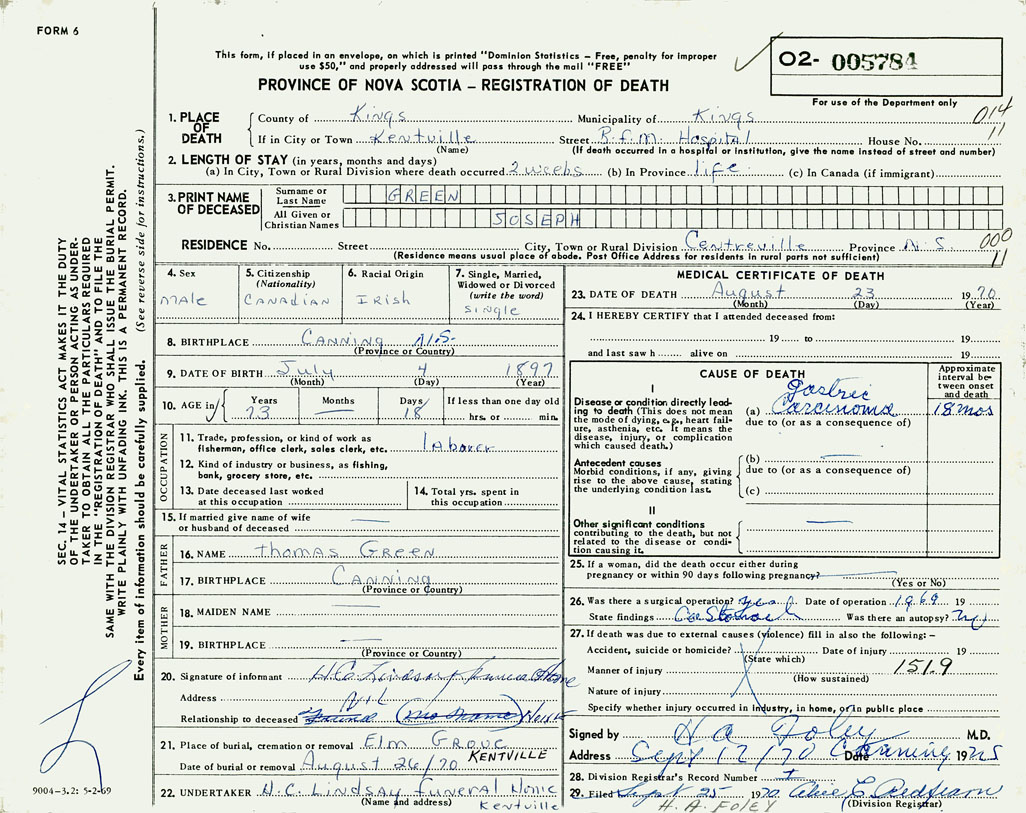 FORM 6
This form, if placed in an envelope, on which is printed "Dominion Statistics – Free, penalty for improper
use $50," and properly addressed will pass through the mail "FREE"
O2- 005784
PROVINCE OF NOVA SCOTIA – REGISTRATION OF DEATH
For use of the Department only
014
11
1. PLACE OF DEATH
County of Kings Municipality of Kings
If in City or Town Kentville Street B.F.M. Hospital House No.
(Name) (If death occurred in a hospital or institution, give the name instead of street and number)
2. LENGTH OF STAY (in years, months and days)
(a) In City, Town or Rural Division where death occurred 2 weeks (b) In Province life (c) In Canada (if immigrant)
3. PRINT NAME OF DECEASED
Surname or Last Name GREEN
All Given or Christian Names JOSEPH
RESIDENCE No. Street City, Town or Rural Division Centreville Province N.S. 000
(Residence means usual place of abode. Post Office Address for residents in rural parts not sufficient) 11
4. Sex
male
5. Citizenship (Nationality)
Canadian
6. Racial Origin
Irish
7. Single, Married, Widowed or Divorced (write the word)
single
8. BIRTHPLACE Canning N.S.
(Province or Country)
9. DATE OF BIRTH July 4 1897
(Month) (Day) (Year)
10. AGE in Years 73 Months — Days 18 If less than one day old
hrs. or min.
OCCUPATION
11. Trade, profession, or kind of work as
fisherman, office clerk, sales clerk, etc. laborer
12. Kind of industry or business, as fishing,
bank, grocery store, etc.
13. Date deceased last worked
at this occupation
14. Total yrs. spent in
this occupation
15. If married give name of wife
or husband of deceased —
FATHER
16. NAME Thomas Green
17. BIRTHPLACE Canning
(Province or Country)
MOTHER
18. MAIDEN NAME —
19. BIRTHPLACE —
(Province or Country)
20. Signature of informant H.C. Lindsay Funeral Home
Address
Relationship to deceased Friend
21. Place of burial, cremation or removal Elm Grove
KENTVILLE
Date of burial or removal August 26/70
22. UNDERTAKER H.C. Lindsay Funeral Home
(Name and address) Kentville
MEDICAL CERTIFICATE OF DEATH
23. DATE OF DEATH August 23 1970
(Month) (Day) (Year)
24. I HEREBY CERTIFY that I attended deceased from:
19 to 19
and last saw h alive on 19
CAUSE OF DEATH
Approximate interval between onset and death
I
Disease or condition directly leading to death (This does not mean the mode of dying, e.g., heart failure, asthenia, etc. It means the disease, injury, or complication which caused death.)
(a) Gastric Carcinoma 18 mos
due to (or as a consequence of)
Antecedent causes
Morbid conditions, if any, giving rise to the above cause, stating the underlying condition last.
(b) —
due to (or as a consequence of)
(c)
II
Other significant conditions
contributing to the death, but not related to the disease or condition causing it. —
25. If a woman, did the death occur either during
pregnancy or within 90 days following pregnancy? —
(Yes or No)
26. Was there a surgical operation? yes Date of operation 1969 19
State findings Ca Stomach Was there an autopsy? no
27. If death was due to external causes (violence) fill in also the following:–
Accident, suicide or homicide? Date of injury 19
(State which)
Manner of injury 151.9
(How sustained)
Nature of injury
Specify whether injury occurred in industry, in home, or in public place
Signed by H A Foley M.D.
Address Sept 12/70 Canning Date 19
28. Division Registrar's Record Number
29. Filed Sept 25 1970
H. A. FOLEY (Division Registrar)
SEC. 14 – VITAL STATISTICS ACT MAKES IT THE DUTY
OF THE UNDERTAKER OR PERSON ACTING AS UNDER-
TAKER TO OBTAIN ALL THE PARTICULARS REQUIRED
IN THE "REGISTRATION OF DEATH" AND TO FILE THE
SAME WITH THE DIVISION REGISTRAR WHO SHALL ISSUE THE BURIAL PERMIT.
WRITE PLAINLY WITH UNFADING INK. THIS IS A PERMANENT RECORD.
Every item of information should be carefully supplied. (See reverse side for instructions.)
9004-3.2: 5-2-69